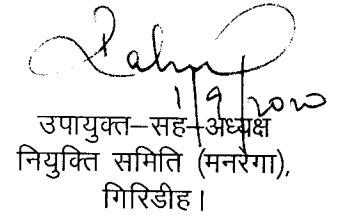 1/9/2020
उपायुक्त-सह-अध्यक्ष
नियुक्ति समिति (मनरेगा),
गिरिडीह।